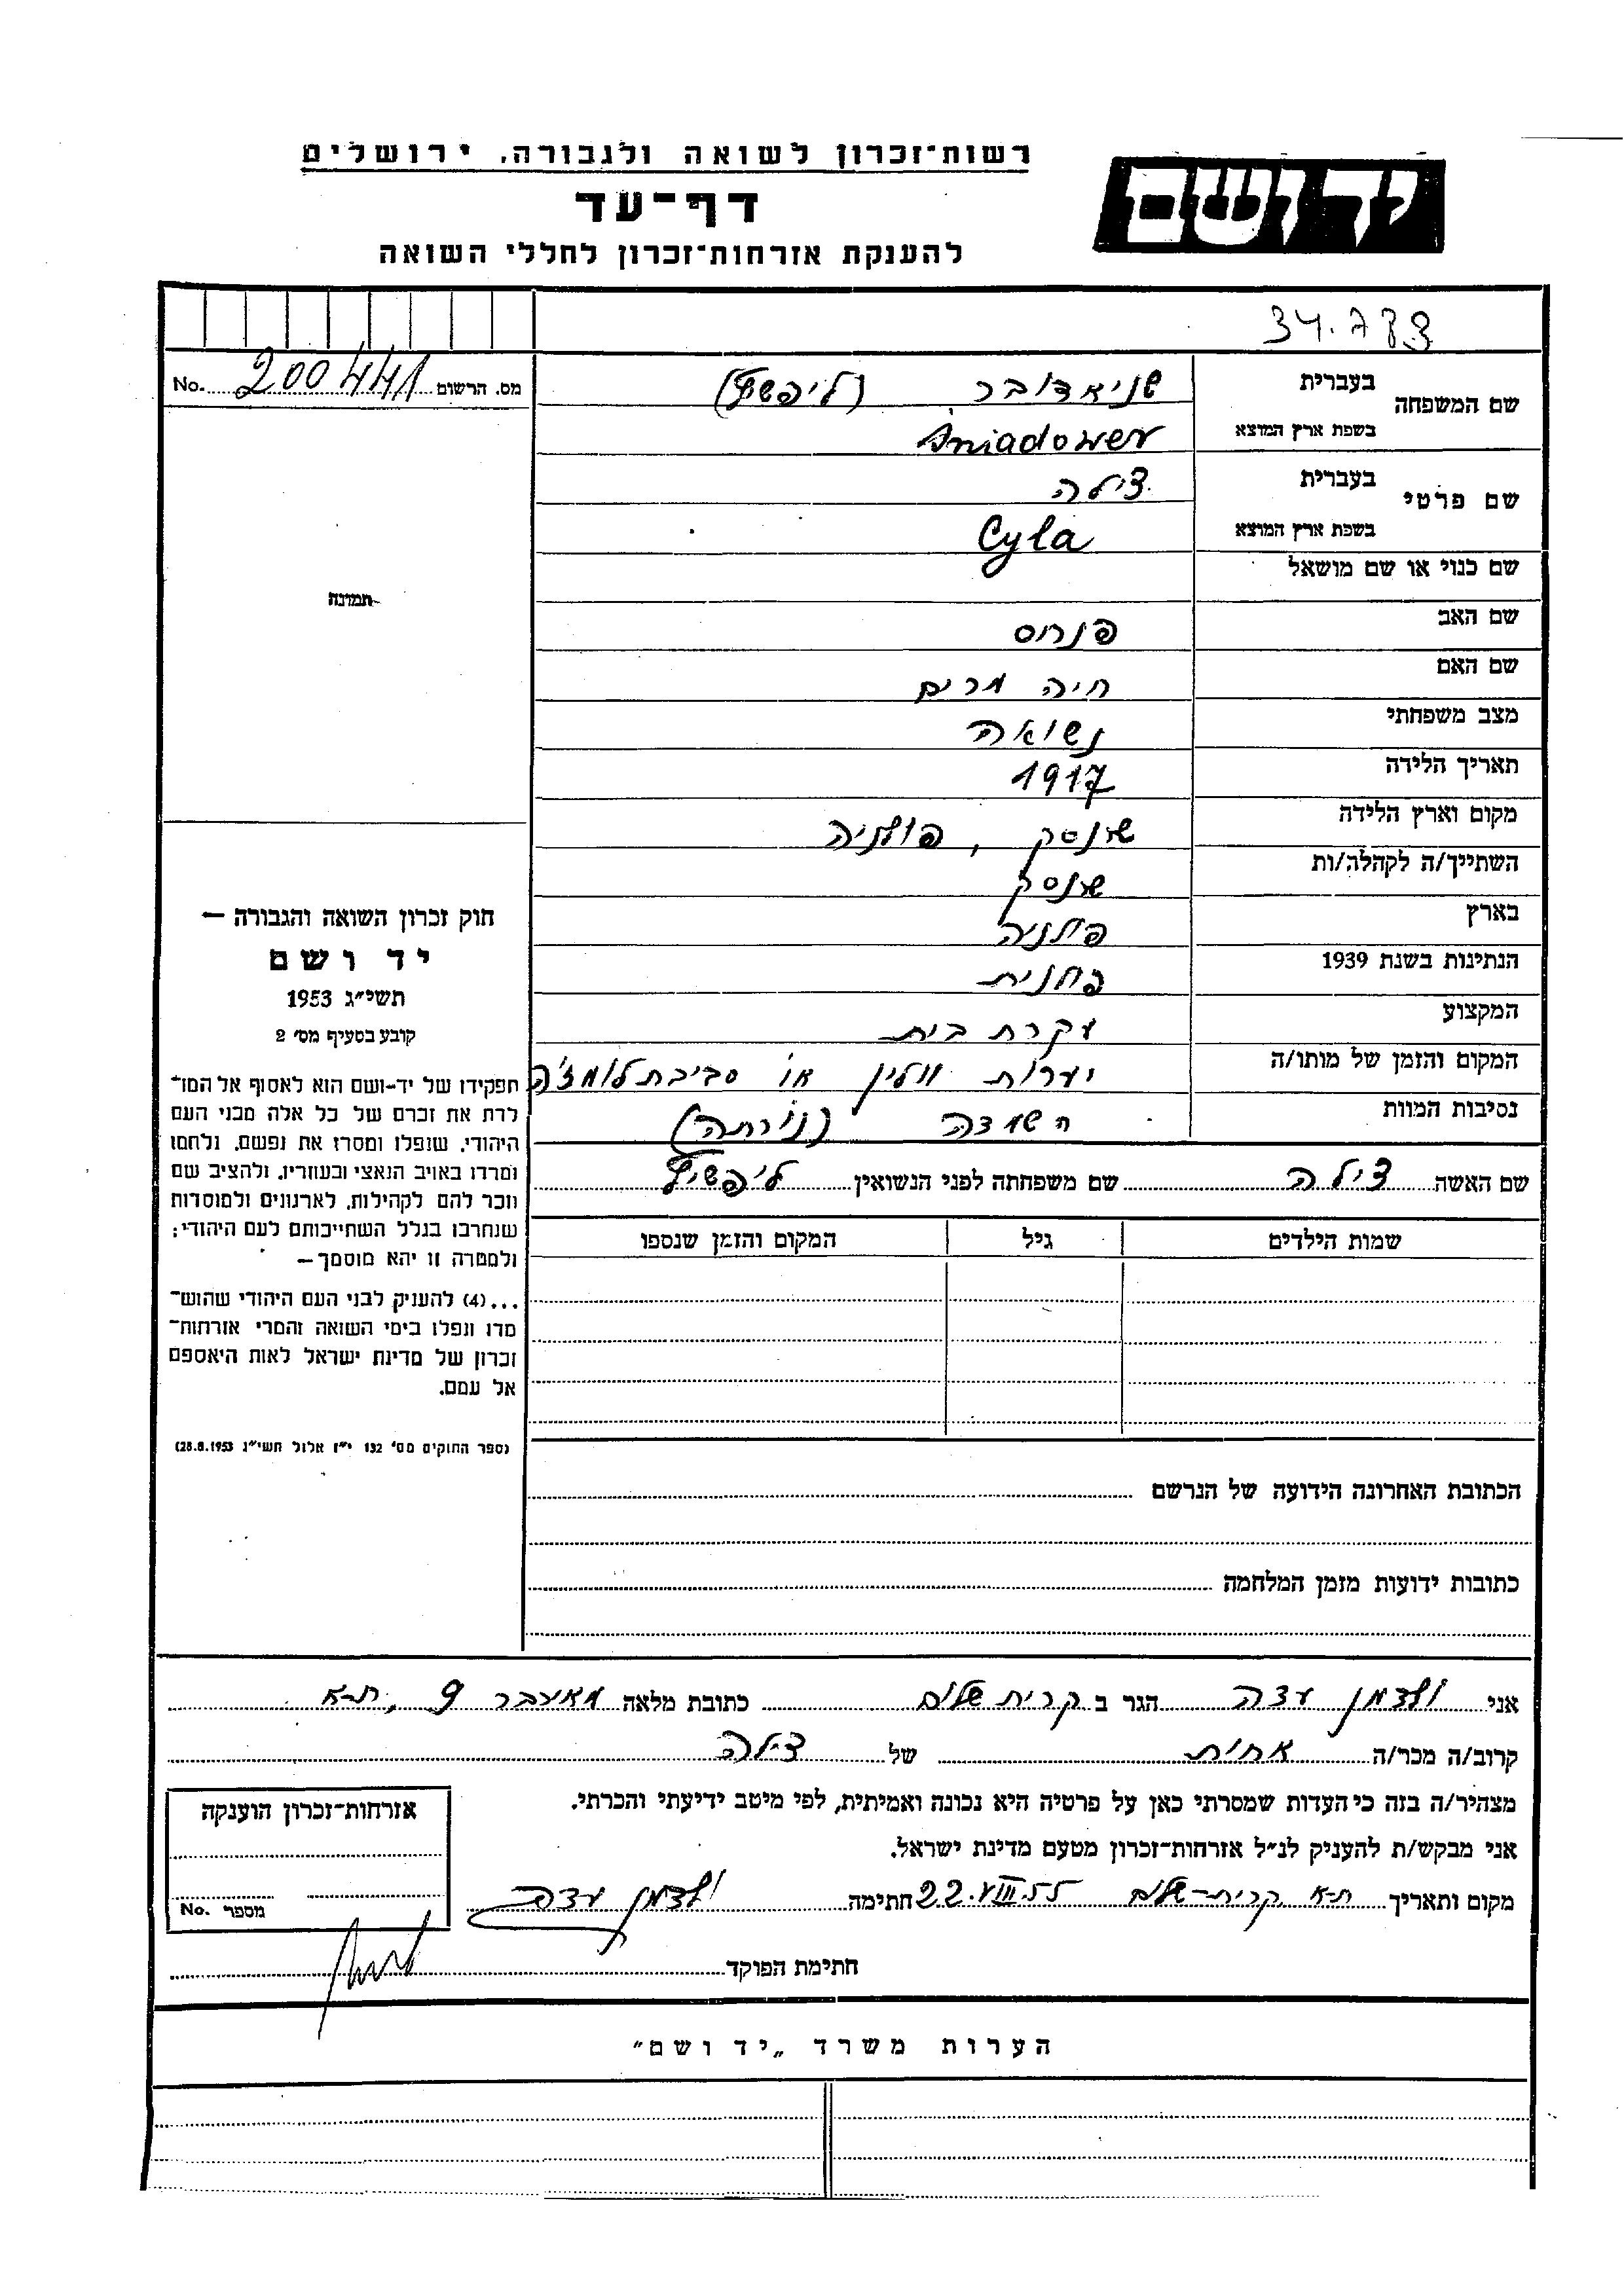 רשות־זכרון לשואה ולגבורה, ירושלים
יד ושם
דף־עד
להענקת אזרחות־זכרון לחללי השואה
34.783
מס. הרשום 200441 No.
שם המשפחה
בעברית שניאדובר (ליפשיץ)
בשפת ארץ המוצא Śniadower
שם פרטי
בעברית צילה
בשפת ארץ המוצא Cyla
שם כנוי או שם מושאל
שם האב פנחס
שם האם חיה מרים
מצב משפחתי נשואה
תאריך הלידה 1917
מקום וארץ הלידה , פולניה
השתייך/ה לקהלה/ות
בארץ פולניה
הנתינות בשנת 1939 פולנית
המקצוע עקרת בית
המקום והזמן של מותו/ה יערות ווהלין או סביבת לומז'ה
נסיבות המוות השמדה (נורתה)
שם האשה צילה שם משפחתה לפני הנשואין ליפשיץ
שמות הילדים גיל המקום והזמן שנספו
הכתובת האחרונה הידועה של הנרשם
כתובות ידועות מזמן המלחמה
תמונה
חוק זכרון השואה והגבורה —
יד ושם
תשי״ג 1953
קובע בסעיף מס׳ 2
תפקידו של יד-ושם הוא לאסוף אל המו־
לדת את זכרם של כל אלה מבני העם
היהודי, שנפלו ומסרו את נפשם, נלחמו
ומרדו באויב הנאצי ובעוזריו, ולהציב שם
וזכר להם לקהילות, לארגונים ולמוסדות
שנחרבו בגלל השתייכותם לעם היהודי;
ולמטרה זו יהא מוסמך—
...(4) להעניק לבני העם היהודי שהוש־
מדו ונפלו בימי השואה והמרי אזרחות־
זכרון של מדינת ישראל לאות היאספם
אל עמם.
(ספר החוקים מס׳ 132 י״ז אלול תשי״ג 28.8.1953)
אני ולדמן עדה הגר ב קרית שלום כתובת מלאה מאירבר 9, ת-א
קרוב/ה מכר/ה אחות של צילה
מצהיר/ה בזה כי העדות שמסרתי כאן על פרטיה היא נכונה ואמיתית, לפי מיטב ידיעתי והכרתי.
אני מבקש/ת להעניק לנ״ל אזרחות־זכרון מטעם מדינת ישראל.
מקום ותאריך ת-א קרית-שלום 22.VIII.55 חתימה ולדמן עדה
אזרחות־זכרון הוענקה
מספר No.
חתימת הפוקד
הערות משרד „יד ושם״